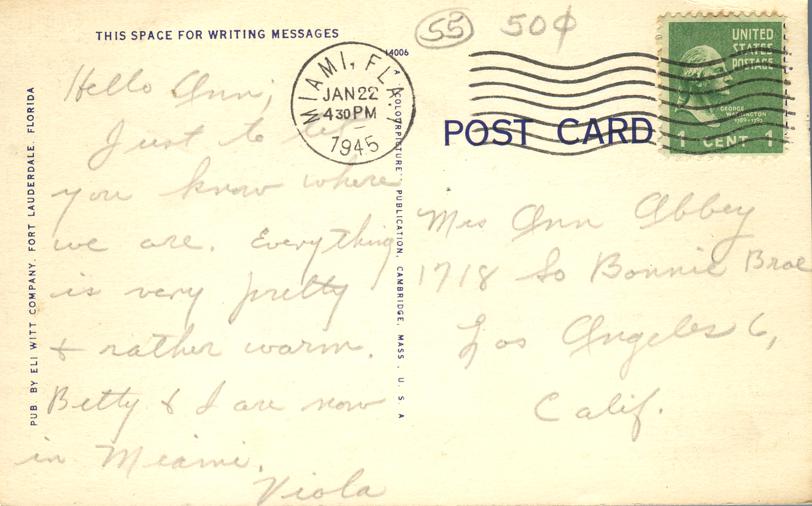 THIS SPACE FOR WRITING MESSAGES
Hello Ann;
Just to let
you know where
we are. Everything
is very pretty
& rather warm.
Betty & I are now
in Miami.
Viola
PUB. BY ELI WITT COMPANY, FORT LAUDERDALE, FLORIDA
14006
A "COLORPICTURE" PUBLICATION, CAMBRIDGE, MASS., U. S. A
MIAMI, FLA.
JAN 22
4 30 PM
1945
55 50¢
UNITED
STATES
POSTAGE
GEORGE
WASHINGTON
1789-1797
1 CENT 1
POST CARD
Mrs Ann Abbey
1718 So Bonnie Brae
Los Angeles 6,
Calif.